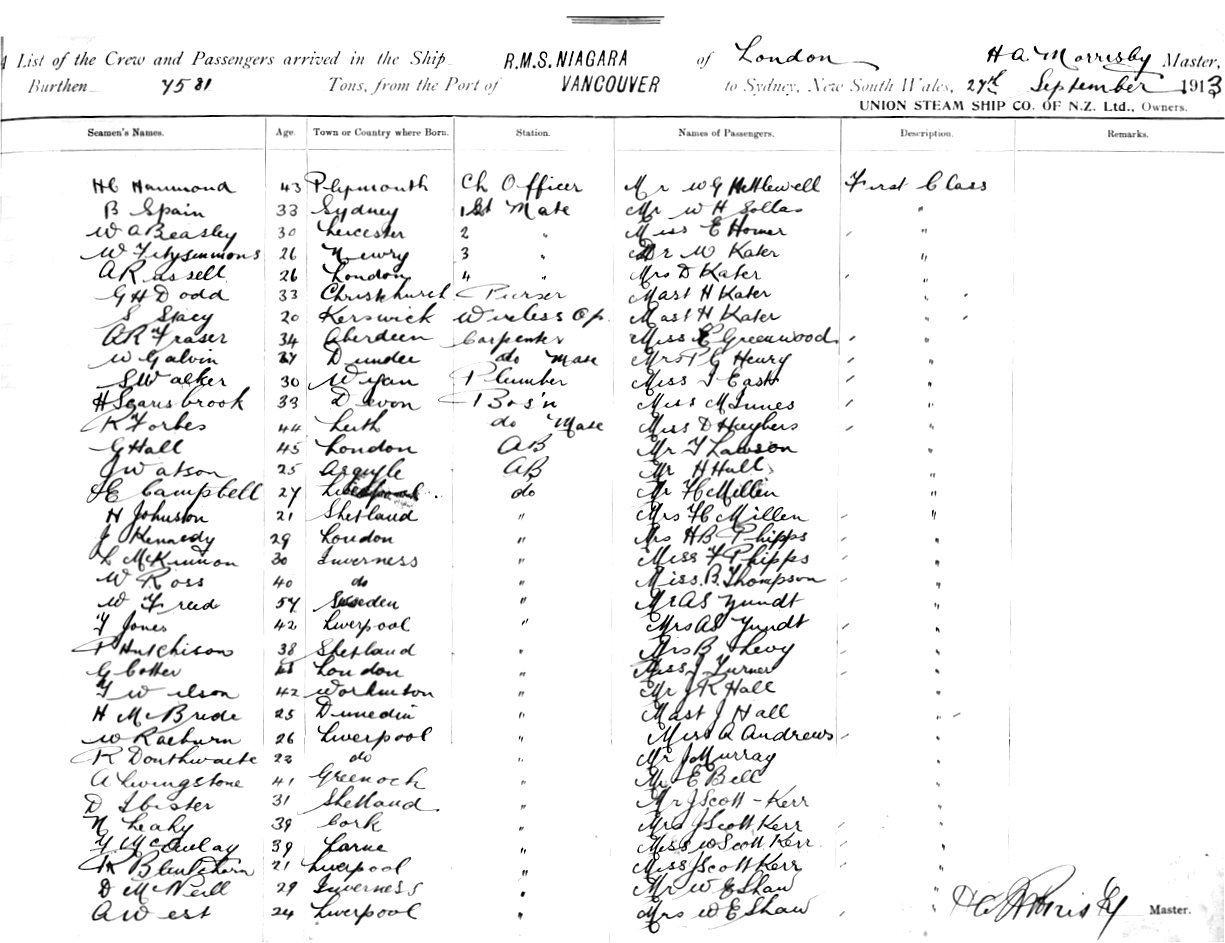 List of the Crew and Passengers arrived in the Ship R.M.S. NIAGARA of London H A Morrisby Master,
Burthen 7581 Tons, from the Port of VANCOUVER to Sydney, New South Wales, 27th September 1913
UNION STEAM SHIP CO. OF N.Z. Ltd., Owners.
Seamen's Names. Age. Town or Country where Born. Station. Names of Passengers. Description. Remarks.
HC Hammond 43 Plymouth Ch Officer Mr W G Kettlewell First Class
B Spain 33 Sydney 1st Mate Mr W H Sollas "
W A Beasley 30 Leicester 2 " Miss E Homer "
W Fitzsimmons 26 Newry 3 " Dr M Kater "
A Russell 26 London 4 " Mrs D Kater "
G H Dodd 33 Christchurch Purser Mast H Kater "
S Stacy 20 Kerswick Wireless Op. Mast H Kater "
A R Fraser 34 Aberdeen Carpenter Miss E Greenwood "
W Galvin 27 Dundee do Mate Mrs P C Henry "
S Walker 30 Wigan Plumber Miss I East "
H Scarisbrook 33 Devon Bos'n Miss M Innes "
R Forbes 44 Leith do Mate Miss D Huybers "
G Hall 45 London AB Mr F Lawson "
J Watson 25 Argyle AB Mr H Hull "
J E Campbell 27 do Mr F C Millen "
H Johnston 21 Shetland " Mrs F C Millen "
J Kennedy 29 London " Mrs H B Phipps "
L McKinnon 30 Inverness " Miss F Phipps "
W Ross 40 do " Miss B. Thompson "
W Freed 57 Sweden " Mr A S Yundt "
F Jones 42 Liverpool " Mrs A S Yundt "
P Hutchison 38 Shetland " Mrs B Levy "
G Cotter London " Miss J Turner "
F Wilson 42 Workinton " Mr J R Hall "
H McBride 25 Dunedin " Mast J Hall "
W Raeburn 26 Liverpool " Miss A Andrews "
R Douthwaite 22 do " Mr J Murray "
A Livingstone 41 Greenock " Mr E Bell "
D Isbister 31 Shetland " Mr J Scott-Kerr "
N Leahy 39 Cork " Mrs J Scott Kerr "
F McAulay 39 Larne " Miss W Scott Kerr "
R Blenkhorn 21 Liverpool " Miss J Scott Kerr "
D McNeill 29 Inverness " Mr W E Shaw "
A West 24 Liverpool " Mrs W E Shaw " H A Morrisby Master.